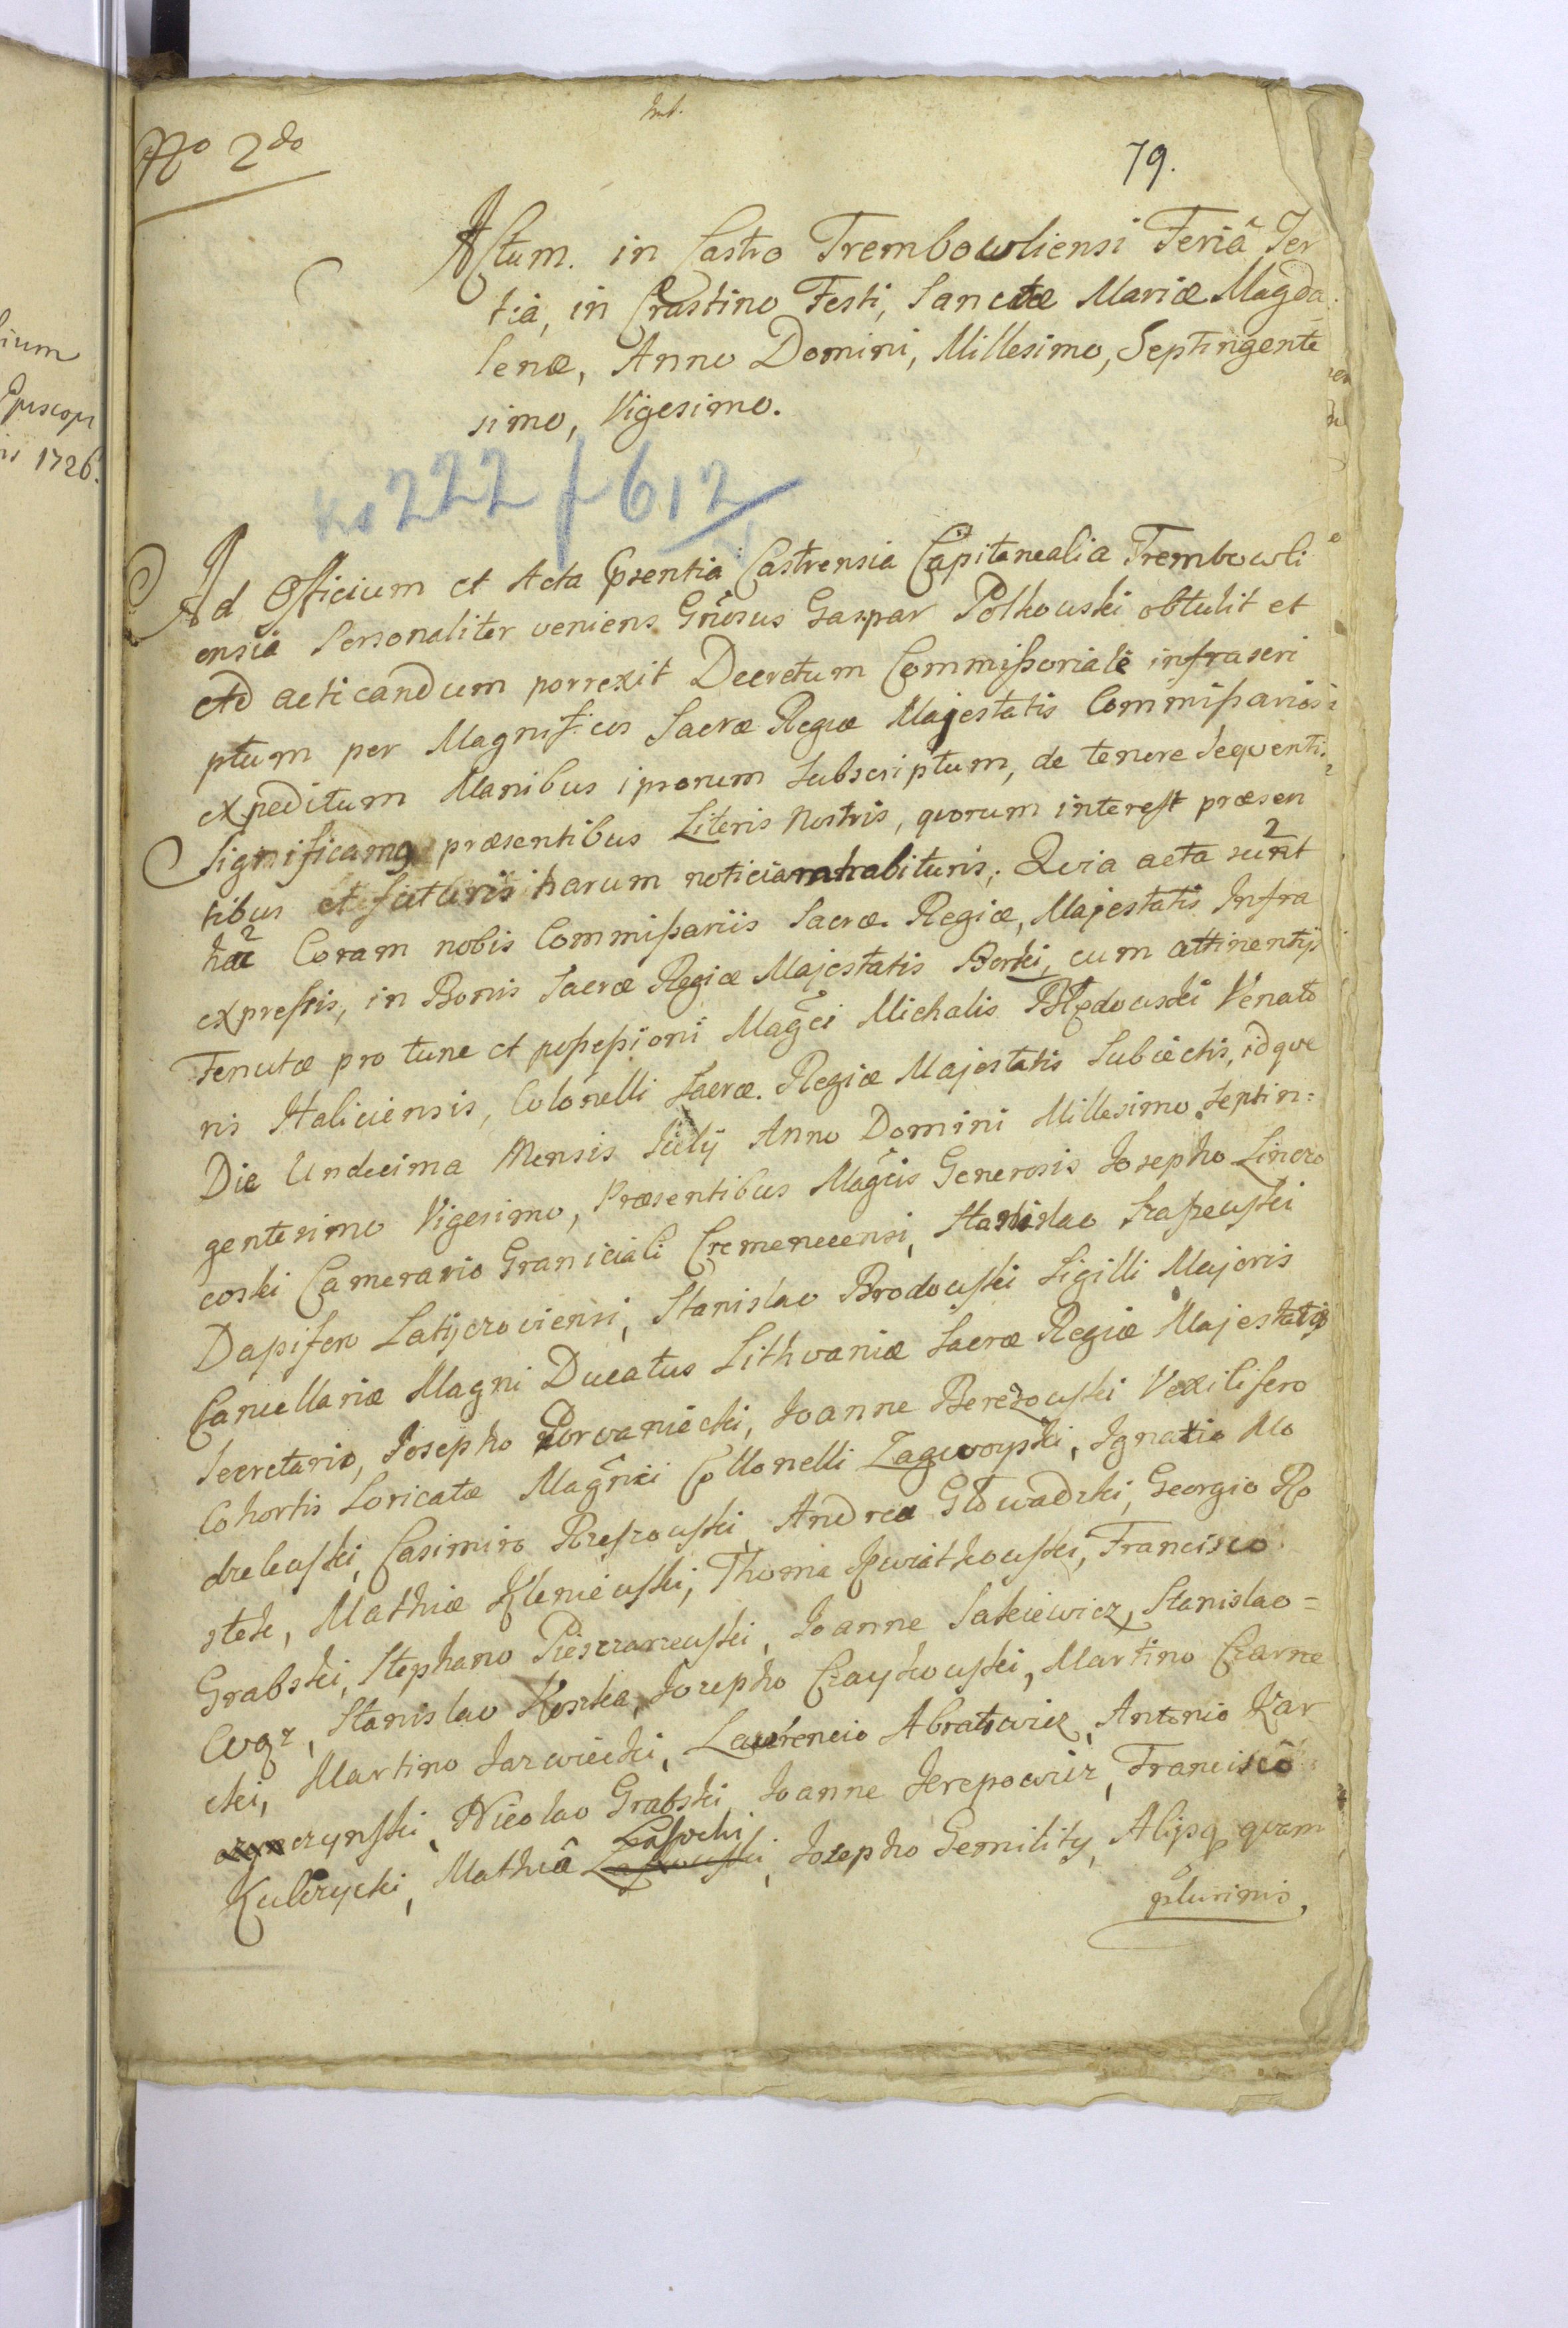 No 2do
79.
Actum. in Castro Trembowliensi Feriâ Ter
tiâ, in Crastino Festi, Sanctæ Mariæ Magda
lenæ, Anno Domini, Millesimo, Septingente
simo, Vigesimo.
222 f 612
Ad Officium et Acta præsentia Castrensia Capitanealia Trembowli
ensia Personaliter veniens Gnosus Gaspar Polkowski obtulit et
Ad acticandum porrexit Decretum Commissoriale infrascri
ptum per Magnificos Sacræ Regiæ Majestatis Commissarios
expeditum Manibus ipsorum Subscriptum, de tenore Sequenti
Significamq præsentibus Literis Nostris, quorum interest præsen
tibus et futuris harum noticiam habituris, Quia acta sunt
hæc Coram nobis Commissariis Sacræ. Regiæ, Majestatis Infra
expressis, in Bonis Sacræ Regiæ Majestatis Borki, cum attinentijs
Tenutæ pro tunc et possessioni Magci Michalis Błędowski Venato
ris Haliciensis, Colonelli Sacræ. Regiæ Majestatis Subiectis, idque
Die Undecima Mensis Julij Anno Domini Millesimo Septin:
gentesimo Vigesimo, Præsentibus Magcis Generosis Josepho
coski Camerario Graniciali Cremenecensi, Stanislao
Dapifero Latyczoviensi, Stanislao Brodowski Sigilli Majoris
Cancellariæ Magni Ducatus Lithvaniæ Sacræ Regiæ Majestatis
Secretario, Josepho Dorvaniecki, Joanne Berezowski Vexilifero
Cohortis Loricatæ Magnici Collonelli Zagwoyski, Ignatio Mo
drelewski, Casimiro Rzeszowski, Andrea Głowadzki, Georgio Ro
stek, Mathiæ Kleniewski, Thoma Kwiatkowski, Francisco
Grabski, Stephano Piesczarzewski, Joanne Sakiewicz, Stanislao =
Stanislao Kostka, Josepho Czaykowski, Martino Czarne
cki, Martino Jarwiecki, Laurencio Abratowicz, Antonio Kar
czynski, Nicolao Grabski, Joanne Jerepowicz, Francisco
Kulczycki, Mathiâ Lassochi, Josepho Gemility, Alijsq quam
plurimis,
ium
Episcopi
is 1726.